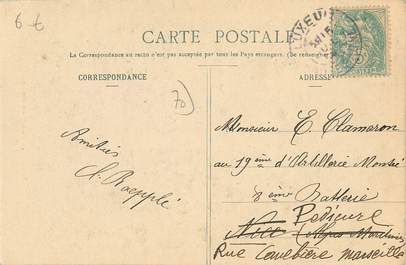 6 €
CARTE POSTALE
La Correspondance au recto n'est pas acceptée par tous les Pays étrangers. (Se renseigner
CORRESPONDANCE
ADRESSE
LUXEUIL
70
Amitiés
Monsieur E. Clameron
au 19ème d'Artillerie Monté
8ème Batterie
Nice Pédicure
Alpes Maritimes
Rue Canebière Marseille